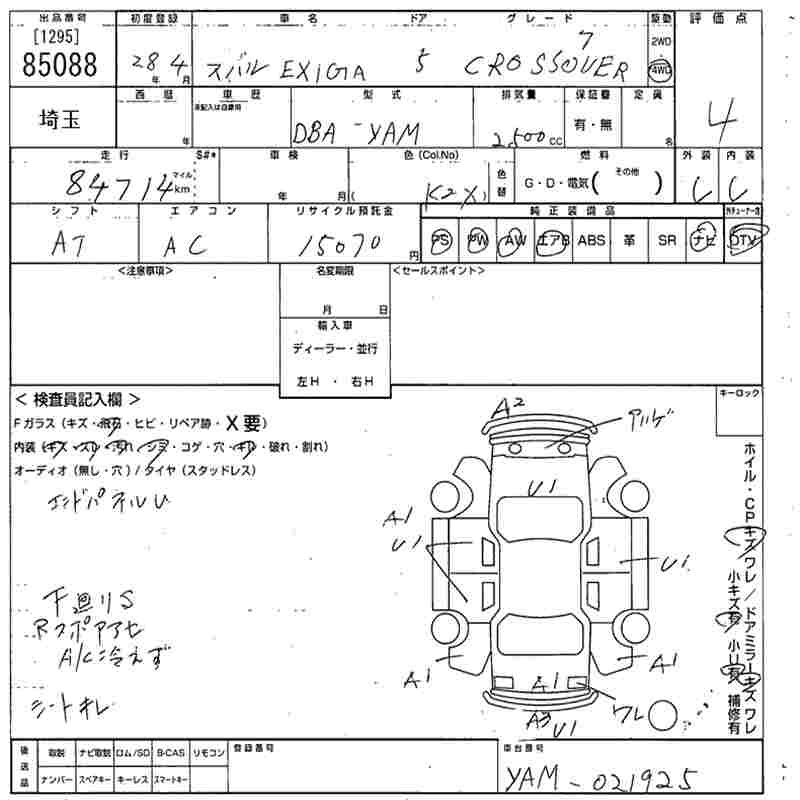 出品番号 初度登録 車名 ドア グレード 駆動 評価点
[1295]
85088
28 4
年 月
スバル EXIGA 5 CROSSOVER 7
2WD
4WD
4
埼玉
西暦 車歴 型式 排気量 保証書 定員
未記入は自家用
年
DBA-YAM
2,500 CC
有・無
名
走行 S#* 車検 色(Col.No) 燃料 外装 内装
84714
マイル
km
年 月(
K2X)
色替
G・D・電気( その他 )
C C
シフト エアコン リサイクル預託金 純正装備品
AT AC 15070 円
PS PW AW エアB ABS 革 SR ナビ DTV
<注意事項> 名変期限 <セールスポイント>
月 日
輸入車
ディーラー・並行
左H ・ 右H
< 検査員記入欄 >
キーロック
Fガラス(キズ・飛石・ヒビ・リペア跡・X要)
内装(キズ・スレ・汚れ・シミ・コゲ・穴・キレ・破れ・割れ)
オーディオ(無し・穴)/タイヤ(スタッドレス)
エンドパネルU
下廻りS
Rスポアアセ
A/C冷えず
シートキレ
A2
アルゲ
U1
A1
U1
U1
A1
A1
A1
A3
U1
ワレ
ホイル・CPキズ ワレ/ドアミラーキズ ワレ
小キズ有 小U有 補修有
後送品
取説 ナビ取説 ロム/SD B-CAS リモコン
ナンバー スペアキー キーレス スマートキー
登録番号
車台番号
YAM-021925